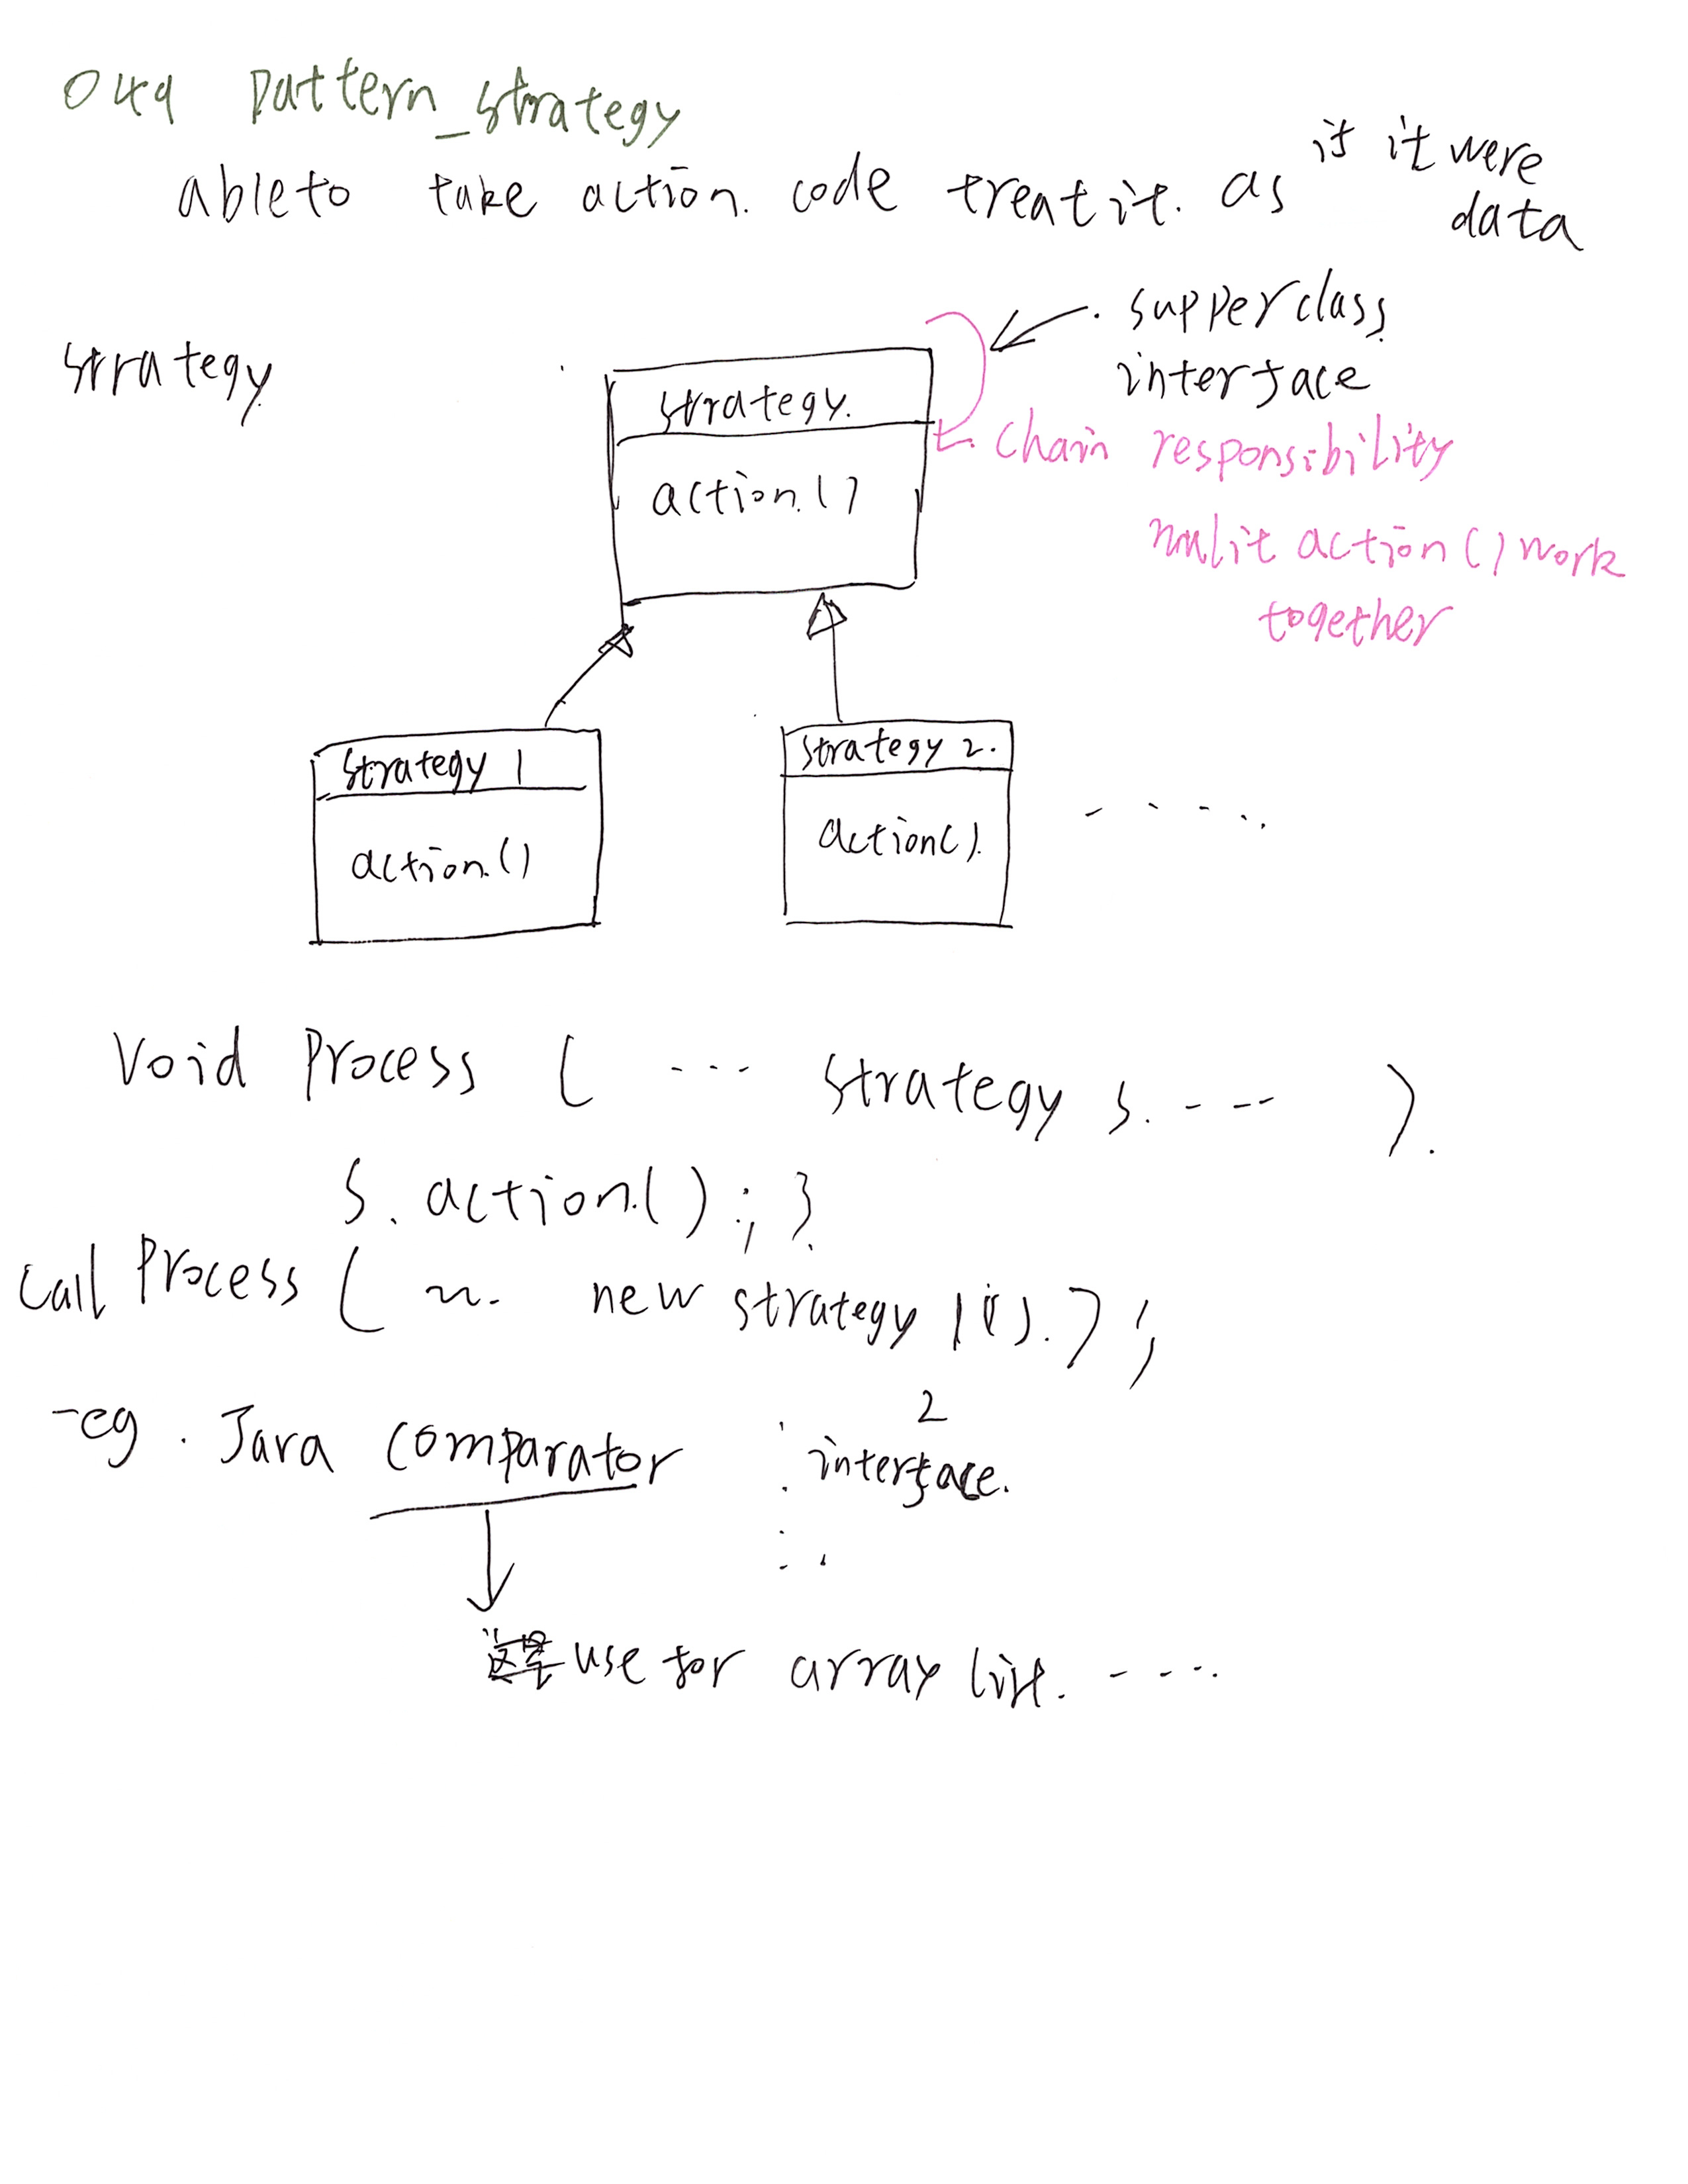 049 Pattern_strategy
able to take action. code treat it. as if it were
data
strategy
supperclass
interface
strategy.
chain responsibility
action()
mulit action() work
together
strategy 1
strategy 2.
action()
action().
.....
Void Process ( --- strategy s. --- ).
s.action();}
call Process ( ~. new strategy 1().);
-eg. Java comparator
2
interface.
use for array list. ----